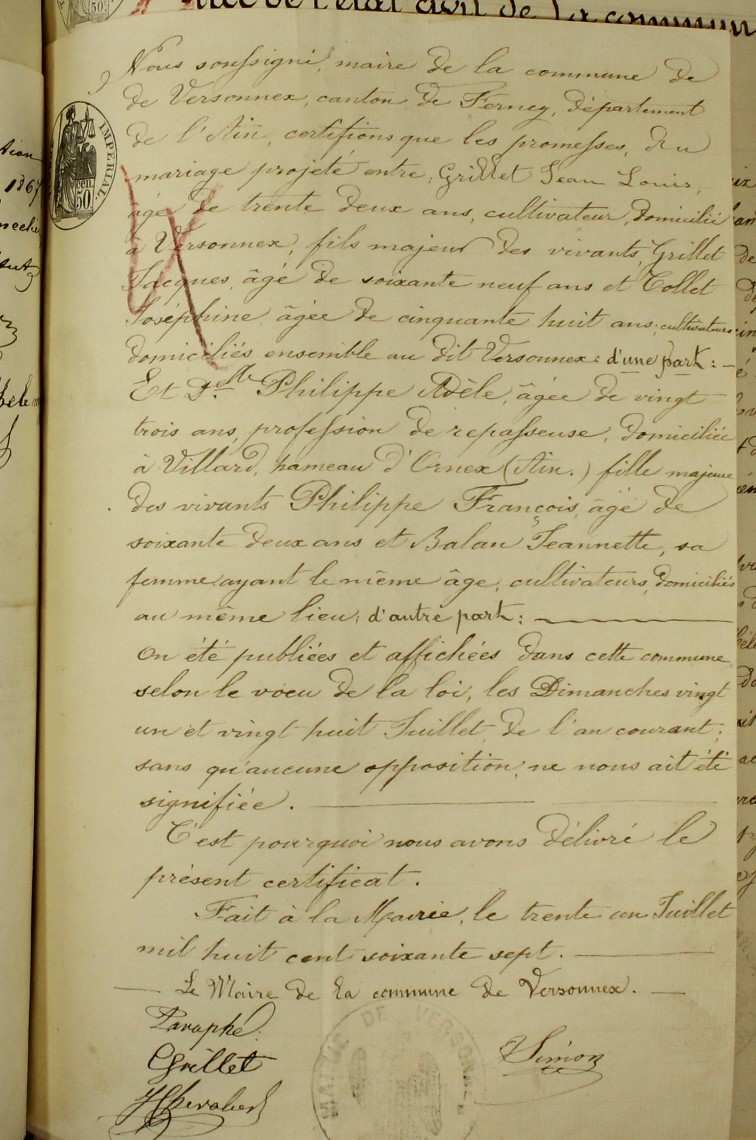 de l'état civil de la commun
Nous soussigné, maire de la commune de
de Versonnex, canton de Ferney, département
de l'Ain, certifions que les promesses, du
mariage projeté entre, Grillet Jean Louis,
âgé de trente deux ans, cultivateur, domicilié
à Versonnex, fils majeur des vivants, Grillet
Jacques, âgé de soixante neuf ans et Collet
Joséphine, âgée de cinquante huit ans, cultivateurs
domiciliés ensemble au dit Versonnex: d'une part: —
Et D.lle Philippe Adèle, âgée de vingt
trois ans, profession de repasseuse, domiciliée
à Villard, hameau d'Ornex (Ain.) fille majeure
des vivants Philippe François, âgé de
soixante deux ans et Balan Jeannette, sa
femme, ayant le même âge, cultivateurs, domiciliés
au même lieu; d'autre part: —
On été publiées et affichées dans cette commune
selon le voeu de la loi, les Dimanches vingt
un et vingt huit Juillet de l'an courant;
sans qu'aucune opposition, ne nous ait été
signifiée. —
C'est pourquoi nous avons délivré le
présent certificat.
Fait à la Mairie, le trente un Juillet
mil huit cent soixante sept. —
— Le Maire de la commune de Versonnex. —
Paraphé
Grillet
Simon
MAIRIE DE VERSONN
IMPERIAL
50
1867